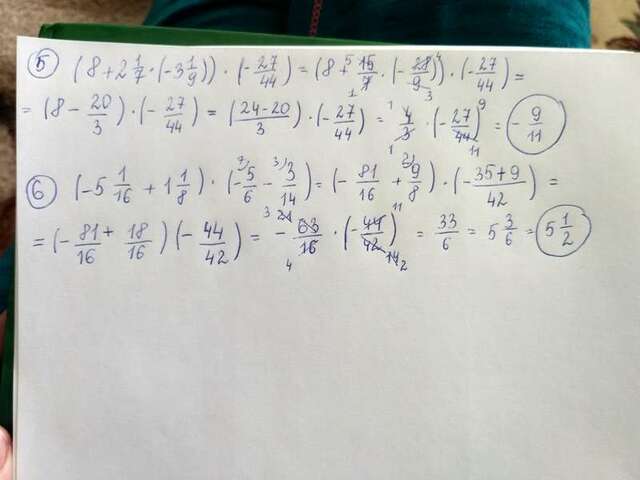 5 (8 + 2 1/7 · (-3 1/9)) · (-27/44) = (8 + 15/7 · (-28/9)) · (-27/44) =
= (8 - 20/3) · (-27/44) = (24-20/3) · (-27/44) = 4/3 · (-27/44) = -9/11
6 (-5 1/16 + 1 1/8) · (-5/6 - 3/14) = (-81/16 + 9/8) · (-35+9/42) =
= (-81/16 + 18/16) (-44/42) = -63/16 · (-44/42) = 33/6 = 5 3/6 = 5 1/2